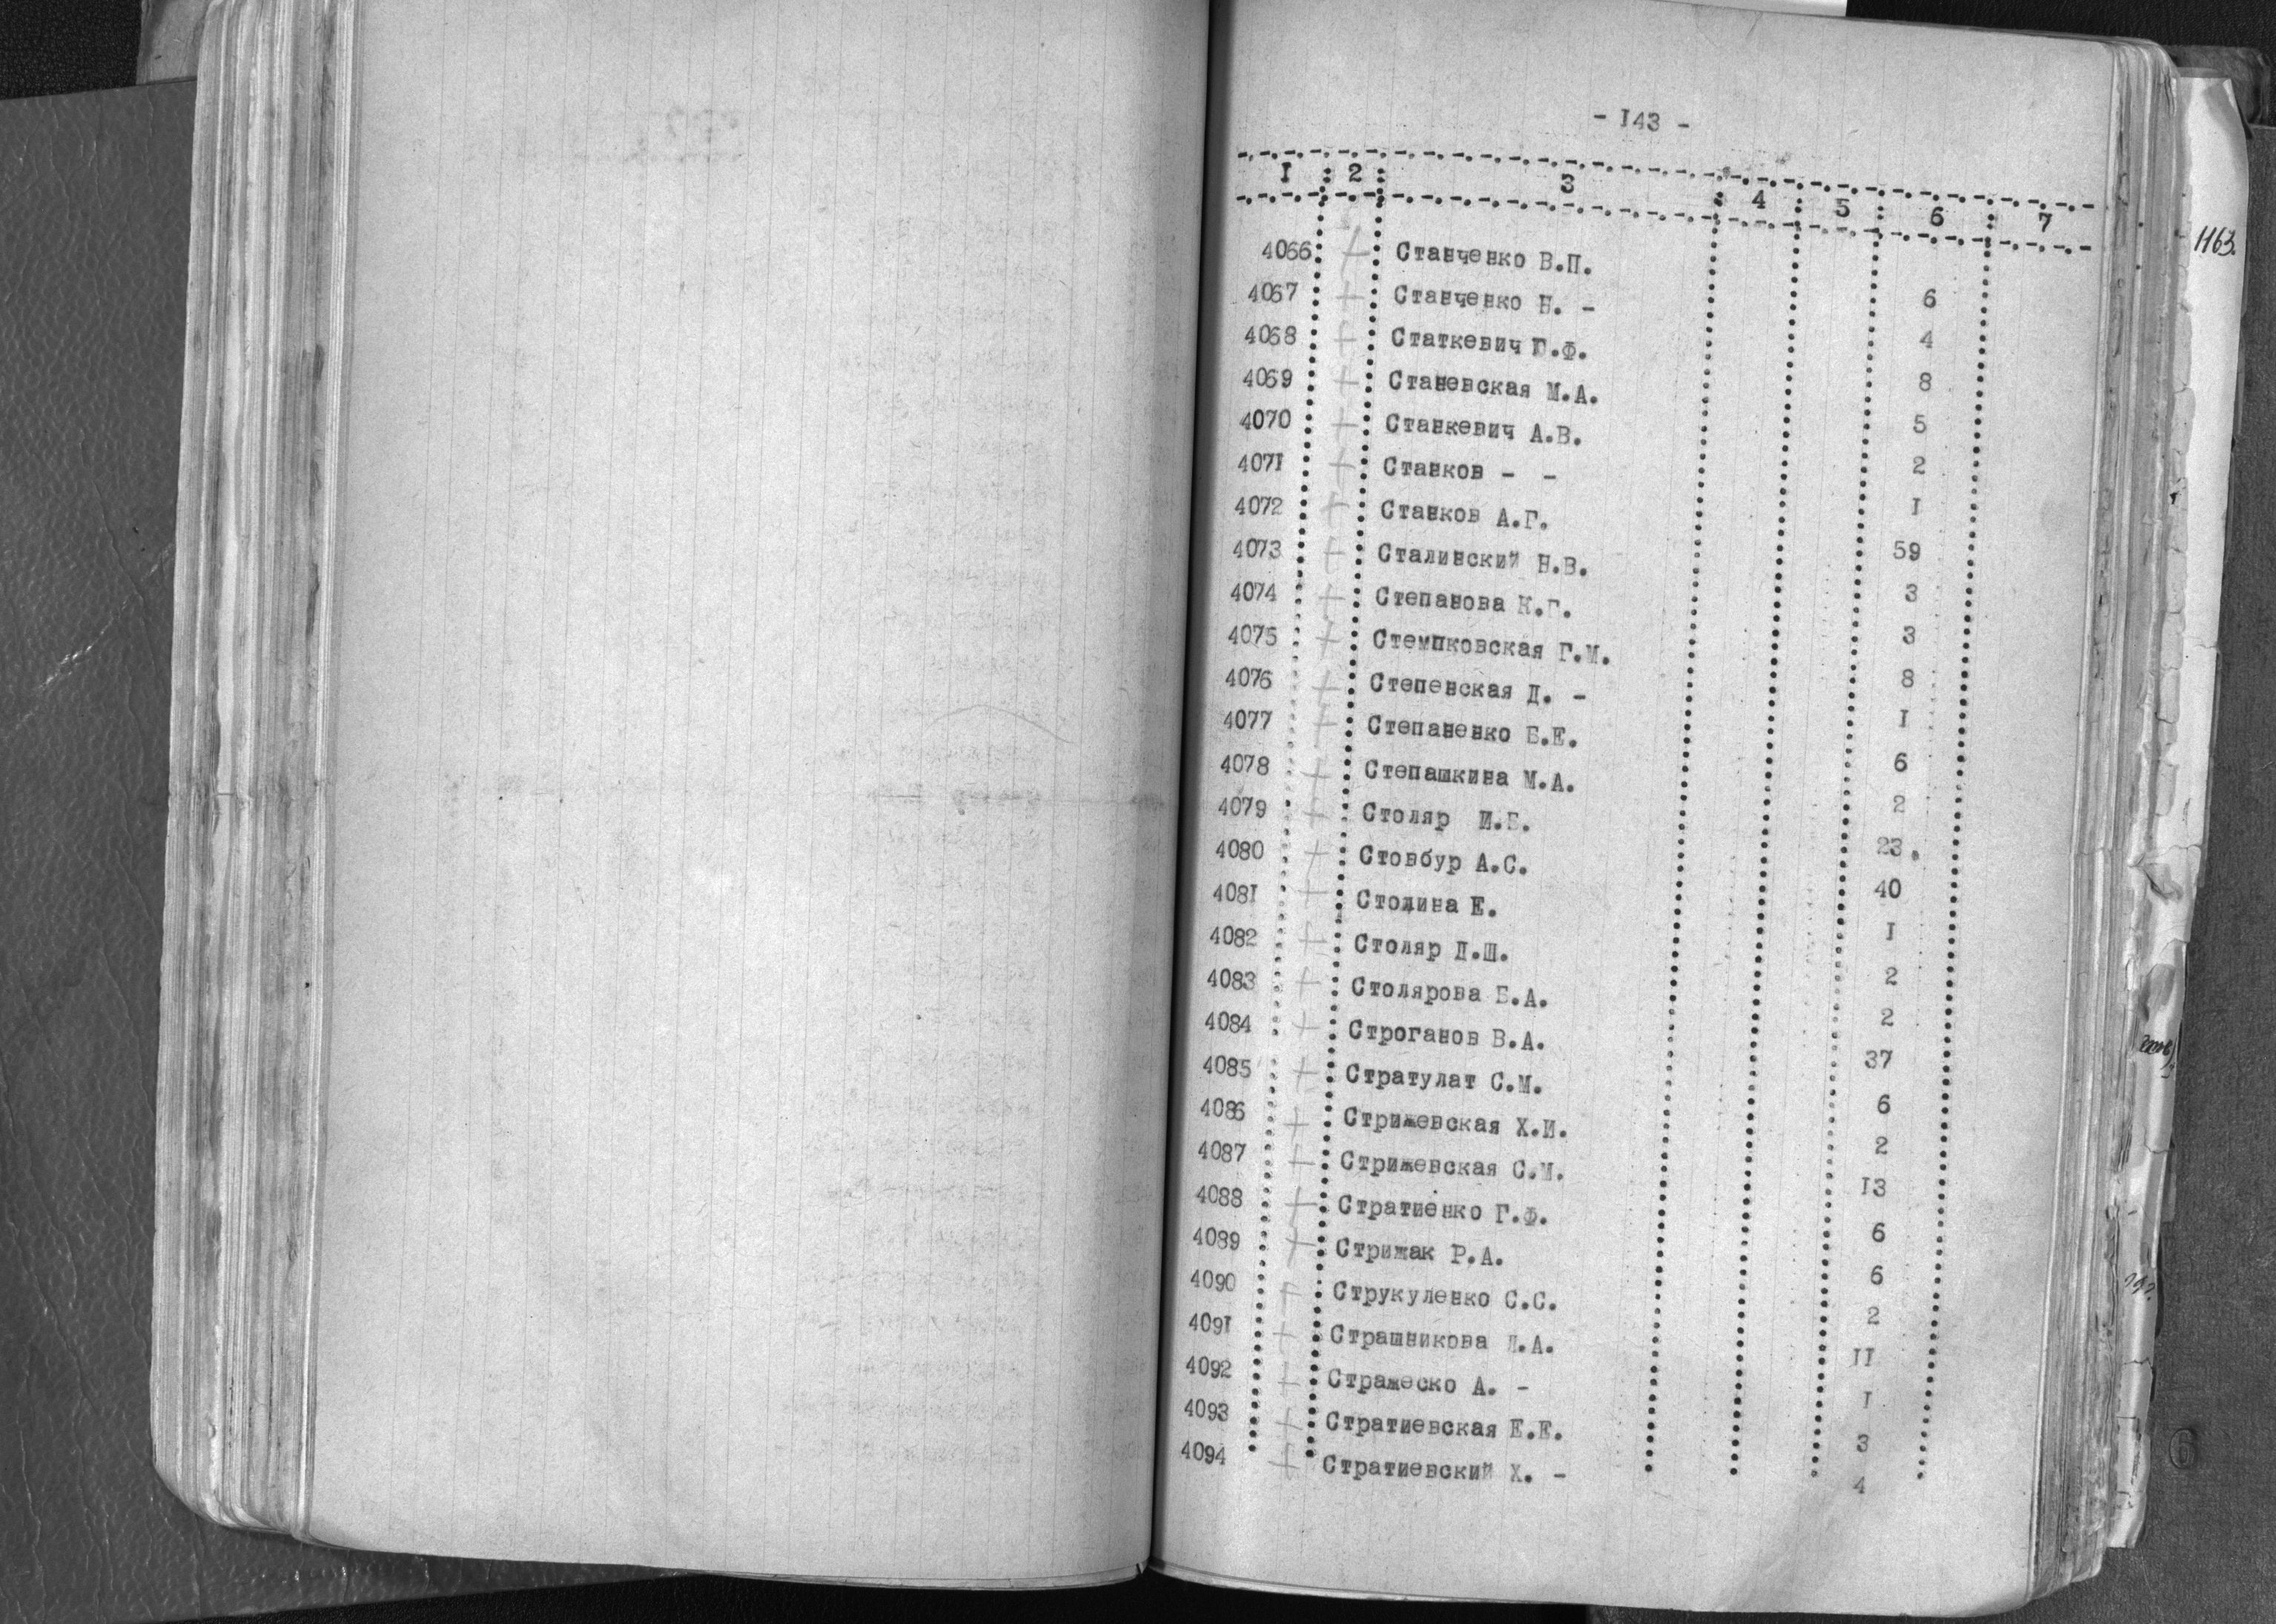 - 143 -
1 2 3 4 5 6 7
4066 + Станченко В.П. 6
4067 + Станченко Н. - 4
4068 + Статкевич Ф. 8
4069 + Станевская М.А. 5
4070 + Станкевич А.В. 2
4071 + Станков - - I
4072 + Станков А.Г. 59
4073 + Сталинский Н.В. 3
4074 + Степанова К.Г. 3
4075 + Стемпковская Г.М. 8
4076 + Степевская Д. - I
4077 + Степаненко Б.Е. 6
4078 + Степашкина М.А. 2
4079 + Столяр И.Б. 23.
4080 + Стовбур А.С. 40
4081 + Стодина Е. I
4082 + Столяр Д.Ш. 2
4083 + Столярова Б.А. 2
4084 + Строганов В.А. 37
4085 + Стратулат С.М. 6
4086 + Стрижевская Х.И. 2
4087 + Стрижевская С.М. I3
4088 + Стратиенко Г.Ф. 6
4089 + Стрижак Р.А. 6
4090 + Струкуленко С.С. 2
4091 + Страшникова А. II
4092 + Стражеско А. - I
4093 + Стратиевская Е.Е. 3
4094 + Стратиевский Х. - 4
1163.